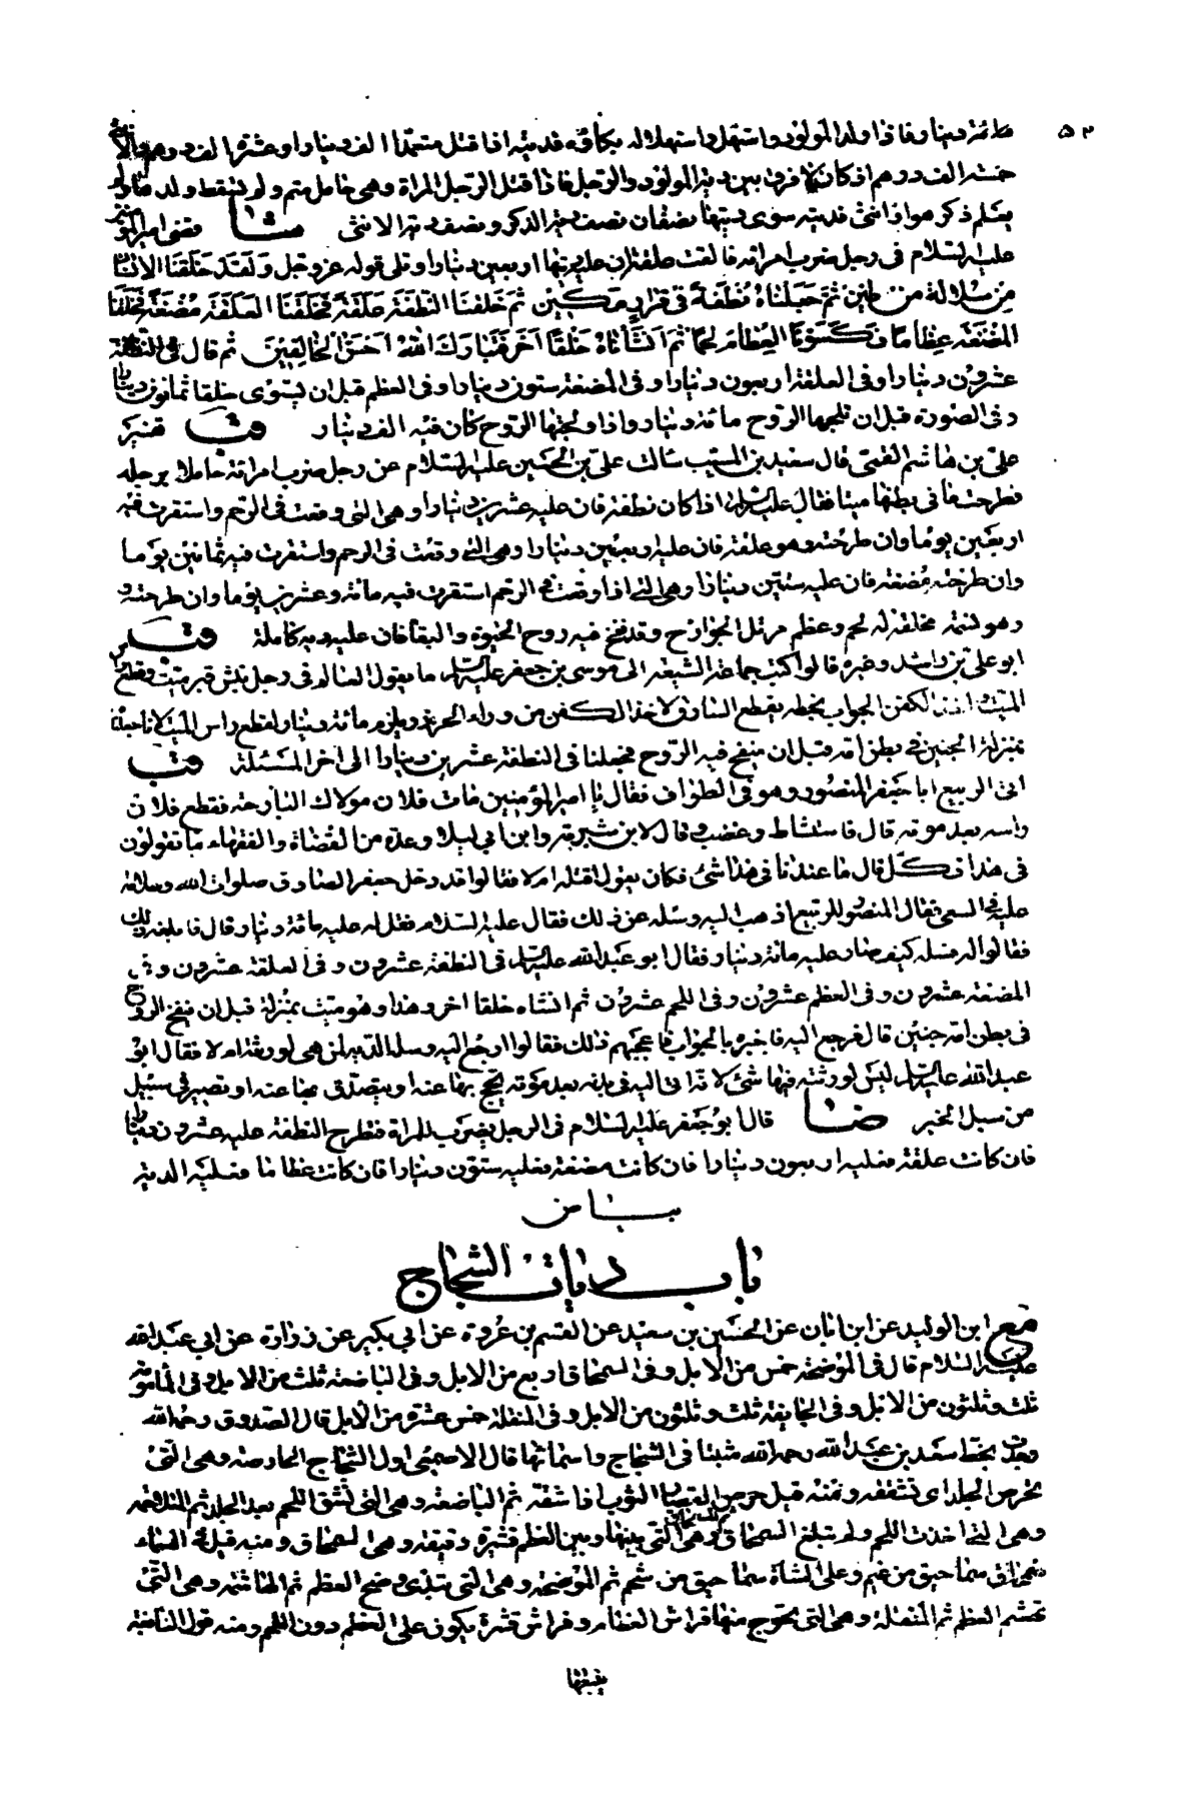 ٥٢
مائة دينار فاذا ولد المولود واستهل واستهلاله بكاؤه فديته اذا قتل متعمدا الف دينار او عشرة الف درهم والانثى
خمسة الف درهم اذ كان لا فرق بين دية المولود والرجل فاذا قتل الرجل المراة وهي حامل متم ولم تسقط ولد ها ولم
يعلم ذكر هو او انثى فديته سوى ديتها نصفان نصف دية الذكر ونصف دية الانثى شا قضى امير المؤمنين
عليه السلام في رجل ضرب امراته فالقت علقة ان عليه ديتها اربعين دينارا وتلى قوله عز وجل وَلَقَدْ خَلَقْنَا الاِنْسَانَ
مِن سُلالَة من طين ثم جَعَلْنَاهُ نُطْفَةً في قَرارٍ مَكينٍ ثم خَلَقْنَا النُّطْفَةَ عَلَقَةً فَخَلَقْنَا العَلَقَةَ مُضْغَةً فَخَلَقْنَا
المُضْغَةَ عِظَامًا فَكَسَوْنَا العِظَامَ لحمًا ثمّ اَنْشَأنَاهُ خَلْقًا آخَرَ فَتَبَارَكَ اللهُ اَحْسَنُ الخَالِقِينَ ثم قال في النطفة
عشرون دينارا وفي العلقة اربعون دينارا وفي المضغة ستون دينارا وفي العظم قبل ان يستوى خلقا ثمانون دينارا
وفي الصورة قبل ان تلجها الروح مائة دينار واذا ولجتها الروح كان فيه الف دينار
علي بن هاشم القمي قال سعيد بن المسيب سالت علي بن الحسين عليه السلام عن رجل ضرب امراته حاملا برجله
فطرحت ما في بطنها ميتا فقال عليه السلام اذا كان نطفة فان عليه عشرين دينارا وهي التي وقعت في الرحم واستقرت فيه
اربعين يوما وان طرحته وهو علقة فان عليه اربعين دينارا وهي التي وقعت في الرحم واستقرت فيه ثمانين يوما
وان طرحته مضغة فان عليه ستين دينارا وهي التي اذا وقعت في الرحم استقرت فيه مائة وعشرين يوما وان طرحته و
وهو نسمة مخلقة له لحم وعظم مرتل الجوارح وقد نفخ فيه روح الحيوة والبقا فان عليه دية كاملة
ابو علي بن راشد وغيره قالوا كتب جماعة الشيعة الى موسى بن جعفر عليه السلام ما يقول العالم في رجل نبش قبر ميت وقطع راس
الميت واخذ الكفن الجواب بخطه يقطع السارق لاخذ الكفن من وراء الحرز ويلزم مائة دينار لقطع راس الميت لانا جعلناه
بمنزلة الجنين في بطن امه قبل ان ينفخ فيه الروح فجعلنا في النطفة عشرين دينارا الى اخر المسئلة
اتى الربيع ابا جعفر المنصور وهو في الطواف فقال يا امير المؤمنين مات فلان مولاك البارحة فقطع فلان
راسه بعد موته قال فاستشاط وغضب وقال لابن شبرمة وابن ابي ليلى وعدة من القضاة والفقهاء ما تقولون
في هذا فكل قال ما عندنا في هذا شئ فكان يقول اقتله ام لا فقالوا قد دخل جعفر الصادق صلوات الله وسلامه
عليه في السعي فقال المنصور للربيع اذهب اليه وسله عن ذلك فقال عليه السلام فقل له عليه مائة دينار قال فابلغه ذلك
فقالوا له فسله كيف صار عليه مائة دينار فقال ابو عبد الله عليه السلام في النطفة عشرون وفي العلقة عشرون وفي
المضغة عشرون وفي العظم عشرون وفي اللحم عشرون ثم انشاه خلقا اخر وهذا وهو ميت بمنزلة قبل ان ينفخ الروح
في بطن امه جنين قال فرجع اليه فاخبره بالجواب فاعجبهم ذلك فقالوا ارجع اليه وسله الدية لمن هي لورثته ام لا فقال ابو
عبد الله عليه السلام ليس لورثته فيها شئ لانه اتى اليه في بدنه بعد موته يحج بها عنه او يتصدق بها عنه او تصير في سبيل
من سبل الخير ضا قال ابو جعفر عليه السلام في الرجل يضرب المراة فتطرح النطفة عليه عشرون دينارا
فان كانت علقة فعليه اربعون دينارا فان كانت مضغة فعليه ستون دينارا فان كانت عظاما فعليه الدية
باب ديات الشجاج
مع ابن الوليد عن ابن ابان عن الحسين بن سعيد عن القسم بن عروة عن ابي بكير عن زرارة عن ابي عبد الله
عليه السلام قال في الموضحة خمس من الابل وفي السمحاق اربع من الابل وفي الباضعة ثلث من الابل وفي المأمومة
ثلث وثلثون من الابل وفي الجايفة ثلث وثلثون من الابل وفي المنقلة خمس عشرة من الابل قال الصدوق رحمه الله
وجدت بخط سعد بن عبد الله رحمه الله مثبتا في الشجاج واسمائها قال الاصمعي اول الشجاج الحارصة وهي التي
تحرص الجلد اى تشققه ومنه قيل حرص القصار الثوب اذا شقه ثم الباضعة وهي التي تشق اللحم بعد الجلد ثم المتلاحمة
وهي التي اخذت اللحم ولم تبلغ السمحاق وهي التي بينها وبين العظم قشرة رقيقة وهي السمحاق ومنه قيل في السماء
سماحيق من غيم وعلى الشاة سماحيق من شحم ثم الموضحة وهي التي تبدى وضح العظم ثم الهاشمة وهي التي
تهشم العظم ثم المنقلة وهي التي يخرج منها فراش العظام وفراش قشرة يكون على العظم دون اللحم ومنه قول النابغة